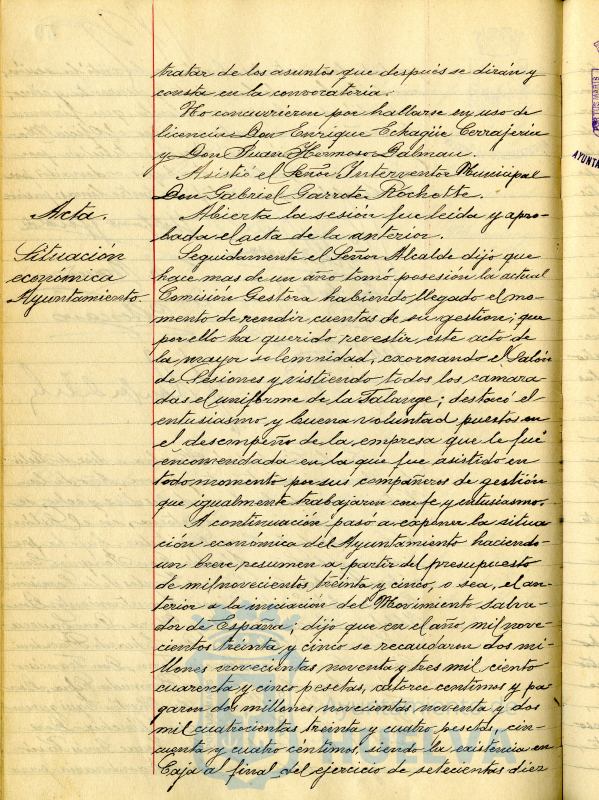 tratar de los asuntos que después se dirán y
consta en la convocatoria.
No concurrieron por hallarse en uso de
licencias Don Enrique Echagüe Cerrajería
y Don Juan Hermoso Dalmau.
Asistió el Señor Interventor Municipal
Don Gabriel Garrote Rochette.
Acta.
Abierta la sesión fue leida y apro-
bada el acta de la anterior.
Situación
económica
Ayuntamiento.
Seguidamente el Señor Alcalde dijo que
hace mas de un año tomó posesión la actual
Comisión Gestora habiendo llegado el mo-
mento de rendir cuentas de su gestion; que
por ello ha querido revestir este acto de
la mayor solemnidad, exornando el Salón
de Sesiones y vistiendo todos los camara-
das el uniforme de la Falange; destacó el
entusiasmo y buena voluntad puestos en
el desempeño de la empresa que le fué
encomendada en la que fue asistido en
todo momento por sus compañeros de gestión
que igualmente trabajaron con fe y entusiasmo.
A continuación pasó a exponer la situa-
ción económica del Ayuntamiento haciendo
un breve resumen a partir del presupuesto
de mil novecientos treinta y cinco, o sea, el an-
terior a la iniciación del Movimiento salva-
dor de España; dijo que en el año mil nove-
cientos treinta y cinco se recaudaron dos mi-
llones novecientas noventa y tres mil ciento
cuarenta y cinco pesetas, catorce centimos y pa-
garon dos millones novecientas noventa y dos
mil cuatrocientas treinta y cuatro pesetas, cin-
cuenta y cuatro centimos, siendo la existencia en
Caja al final del ejercicio de setecientas diez